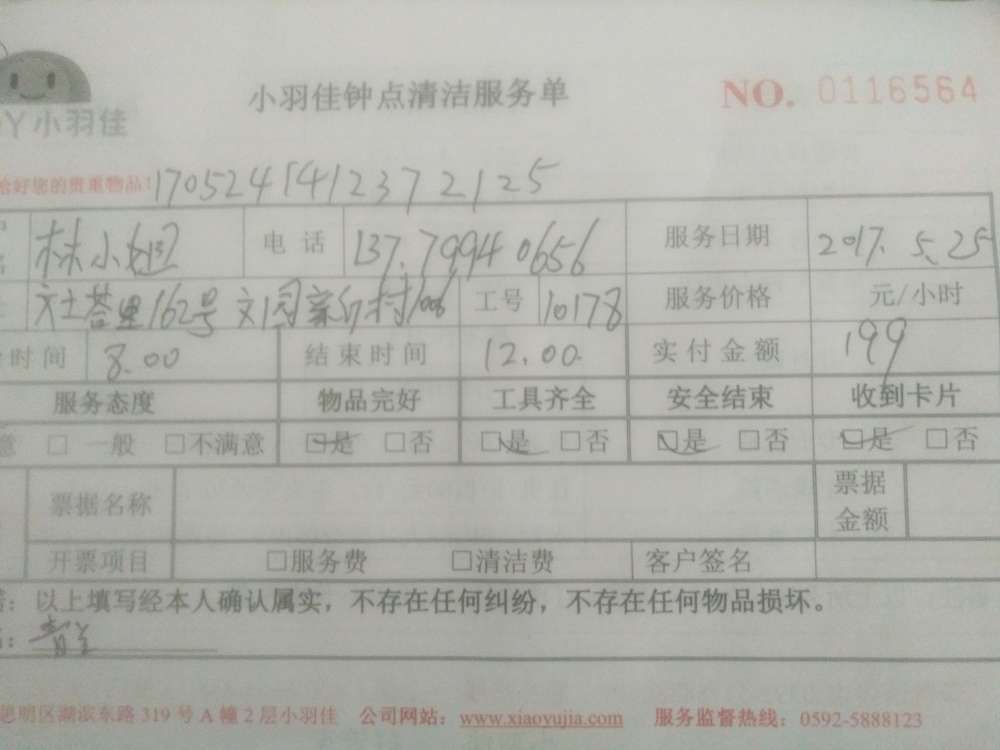 小羽佳钟点清洁服务单 NO. 0116564
Y 小羽佳
恰好您的贵重物品! 170524141237 2125
林小姐 电话 137.79940656 服务日期 2017.5.25
文士塔里162号 工号 10178 服务价格 元/小时
时间 8.00 结束时间 12.00 实付金额 199
服务态度 物品完好 工具齐全 安全结束 收到卡片
意 □ 一般 □不满意 □是 □否 □是 □否 □是 □否 □是 □否
票据名称 票据金额
开票项目 □服务费 □清洁费 客户签名
: 以上填写经本人确认属实,不存在任何纠纷,不存在任何物品损坏。
思明区湖滨东路 319 号 A 幢 2 层小羽佳 公司网站: www.xiaoyujia.com 服务监督热线: 0592-5888123